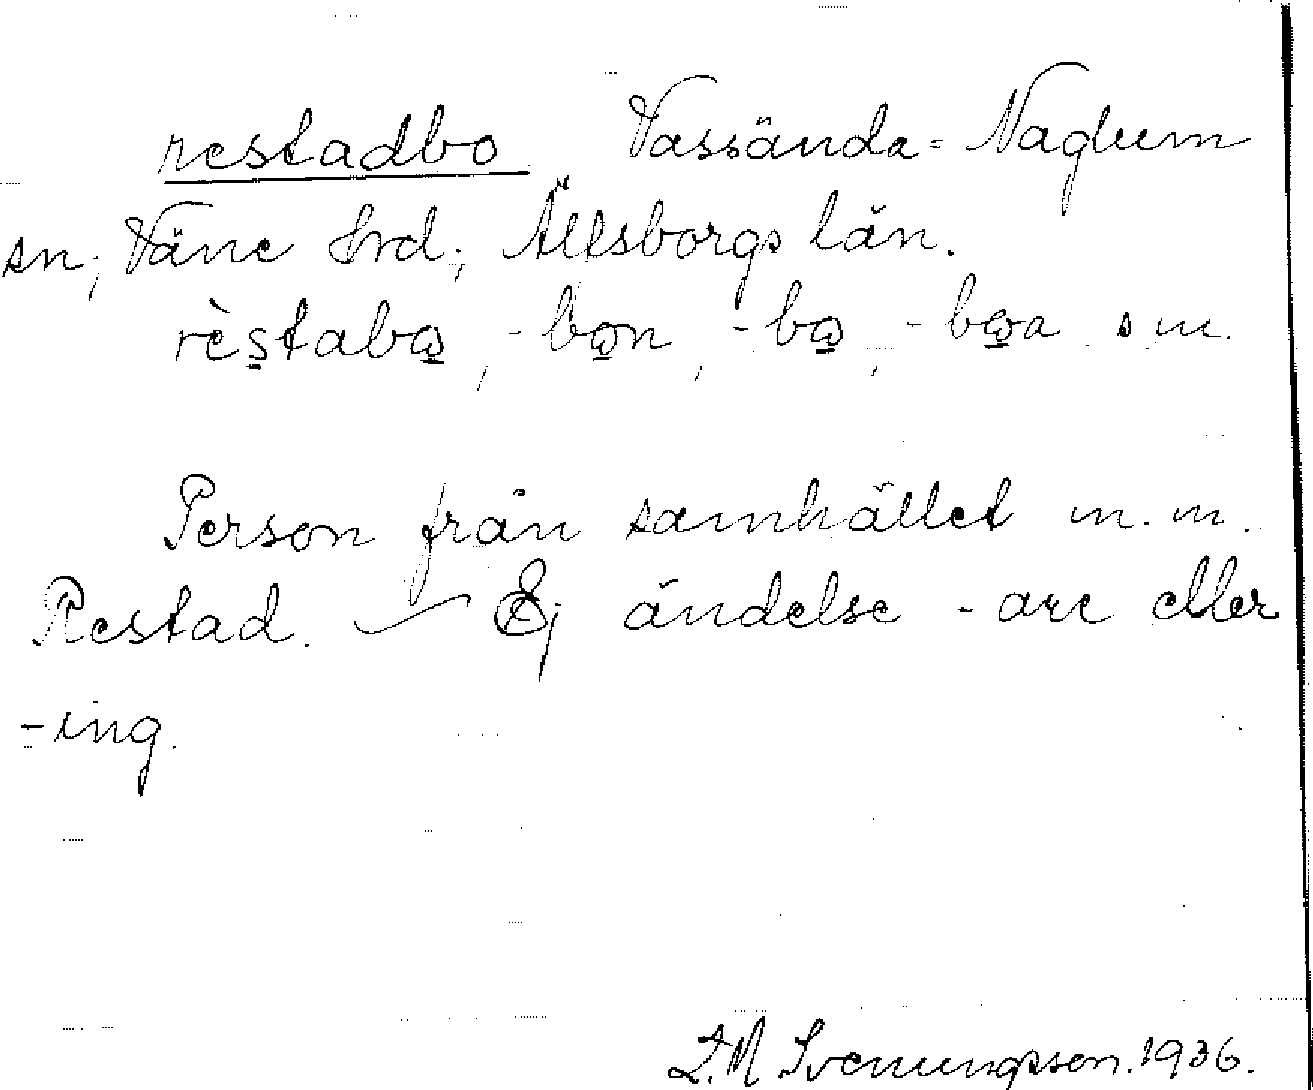 restadbo Vassända-Naglum
sn, Väne hrd, Älvsborgs län.
rèstabω, -bωn, -bω, -bωa sm.
Person från samhället m.m.
Restad. — Ej ändelse -are eller
-ing.
L.M. Svenungsson. 1936.